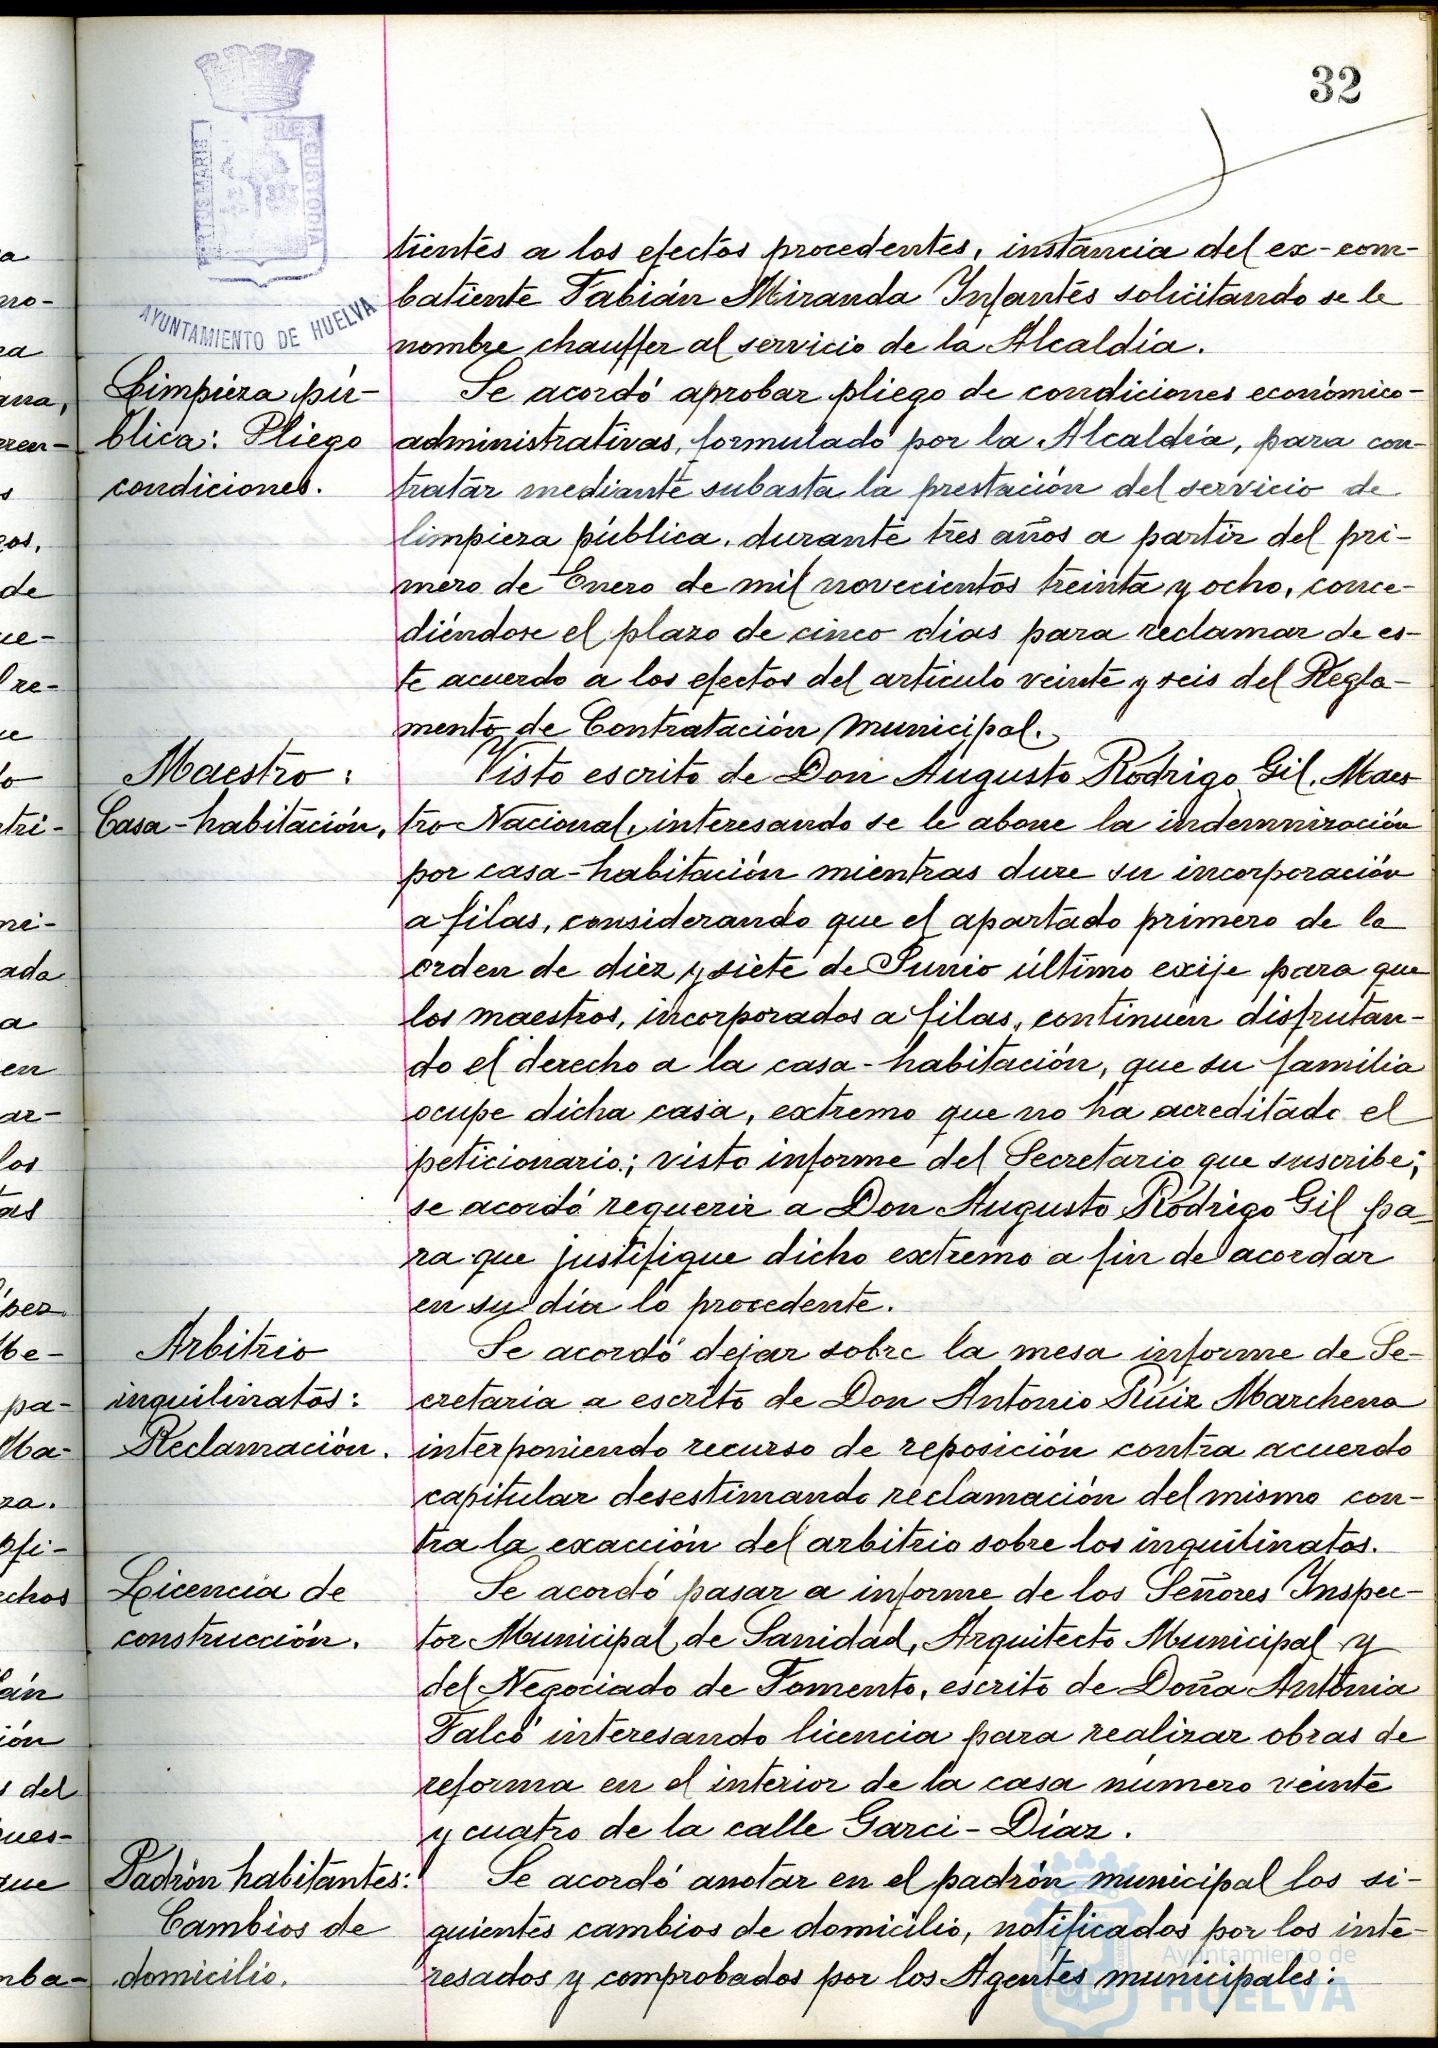 32
AYUNTAMIENTO DE HUELVA
tientes a los efectos procedentes, instancia del ex-com-
batiente Fabián Miranda Infantes solicitando se le
nombre chauffer al servicio de la Alcaldía.
Limpieza pú-
blica: Pliego
condiciones.
Se acordó aprobar pliego de condiciones económico-
administrativas, formulado por la Alcaldía, para con-
tratar mediante subasta la prestación del servicio de
limpieza pública, durante tres años a partir del pri-
mero de Enero de mil novecientos treinta y ocho, conce-
diéndose el plazo de cinco días para reclamar de es-
te acuerdo a los efectos del artículo veinte y seis del Regla-
mento de Contratación Municipal.
Maestro:
Casa-habitación.
Visto escrito de Don Augusto Rodrigo Gil, Maes
tro Nacional, interesando se le abone la indemnización
por casa-habitación mientras dure su incorporación
a filas, considerando que el apartado primero de la
orden de diez y siete de Junio último exije para que
los maestros, incorporados a filas, continuen disfrutan-
do el derecho a la casa-habitación, que su familia
ocupe dicha casa, extremo que no ha acreditado el
peticionario; visto informe del Secretario que suscribe;
se acordó requerir a Don Augusto Rodrigo Gil pa-
ra que justifique dicho extremo a fin de acordar
en su día lo procedente.
Arbitrio
inquilinatos:
Reclamación.
Se acordó dejar sobre la mesa informe de Se-
cretaria a escrito de Don Antonio Ruiz Marchena
interponiendo recurso de reposición contra acuerdo
capitular desestimando reclamación del mismo con-
tra la exacción del arbitrio sobre los inquilinatos.
Licencia de
construcción.
Se acordó pasar a informe de los Señores Inspec-
tor Municipal de Sanidad, Arquitecto Municipal y
del Negociado de Fomento, escrito de Doña Antonia
Falcó interesando licencia para realizar obras de
reforma en el interior de la casa número veinte
y cuatro de la calle Garci-Díaz.
Padrón habitantes:
Cambios de
domicilio.
Se acordó anotar en el padrón municipal los si-
guientes cambios de domicilio, notificados por los inte-
resados y comprobados por los Agentes municipales:
Ayuntamiento de
HUELVA